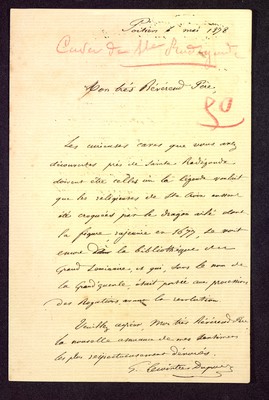 Poitiers 6 mai 1878
Caves de Ste Radegonde
Mon très Révérend Père,
Les curieuses caves que vous avez
découvertes près de Sainte Radégonde
doivent être celles où la légende voulait
que les religieuses de Ste Croix eussent
été croquées par le dragon ailé dont
la figure rajeunie en 1677, se voit
encore dans la bibliothèque du
Grand Séminaire, et qui, sous le nom de
la Grand'gueule, était portée aux processions
des Rogations avant la révolution
Veuillez agréer Mon très Révérend Père
la nouvelle assurance de mes sentiments
les plus respectueusement dévoués.